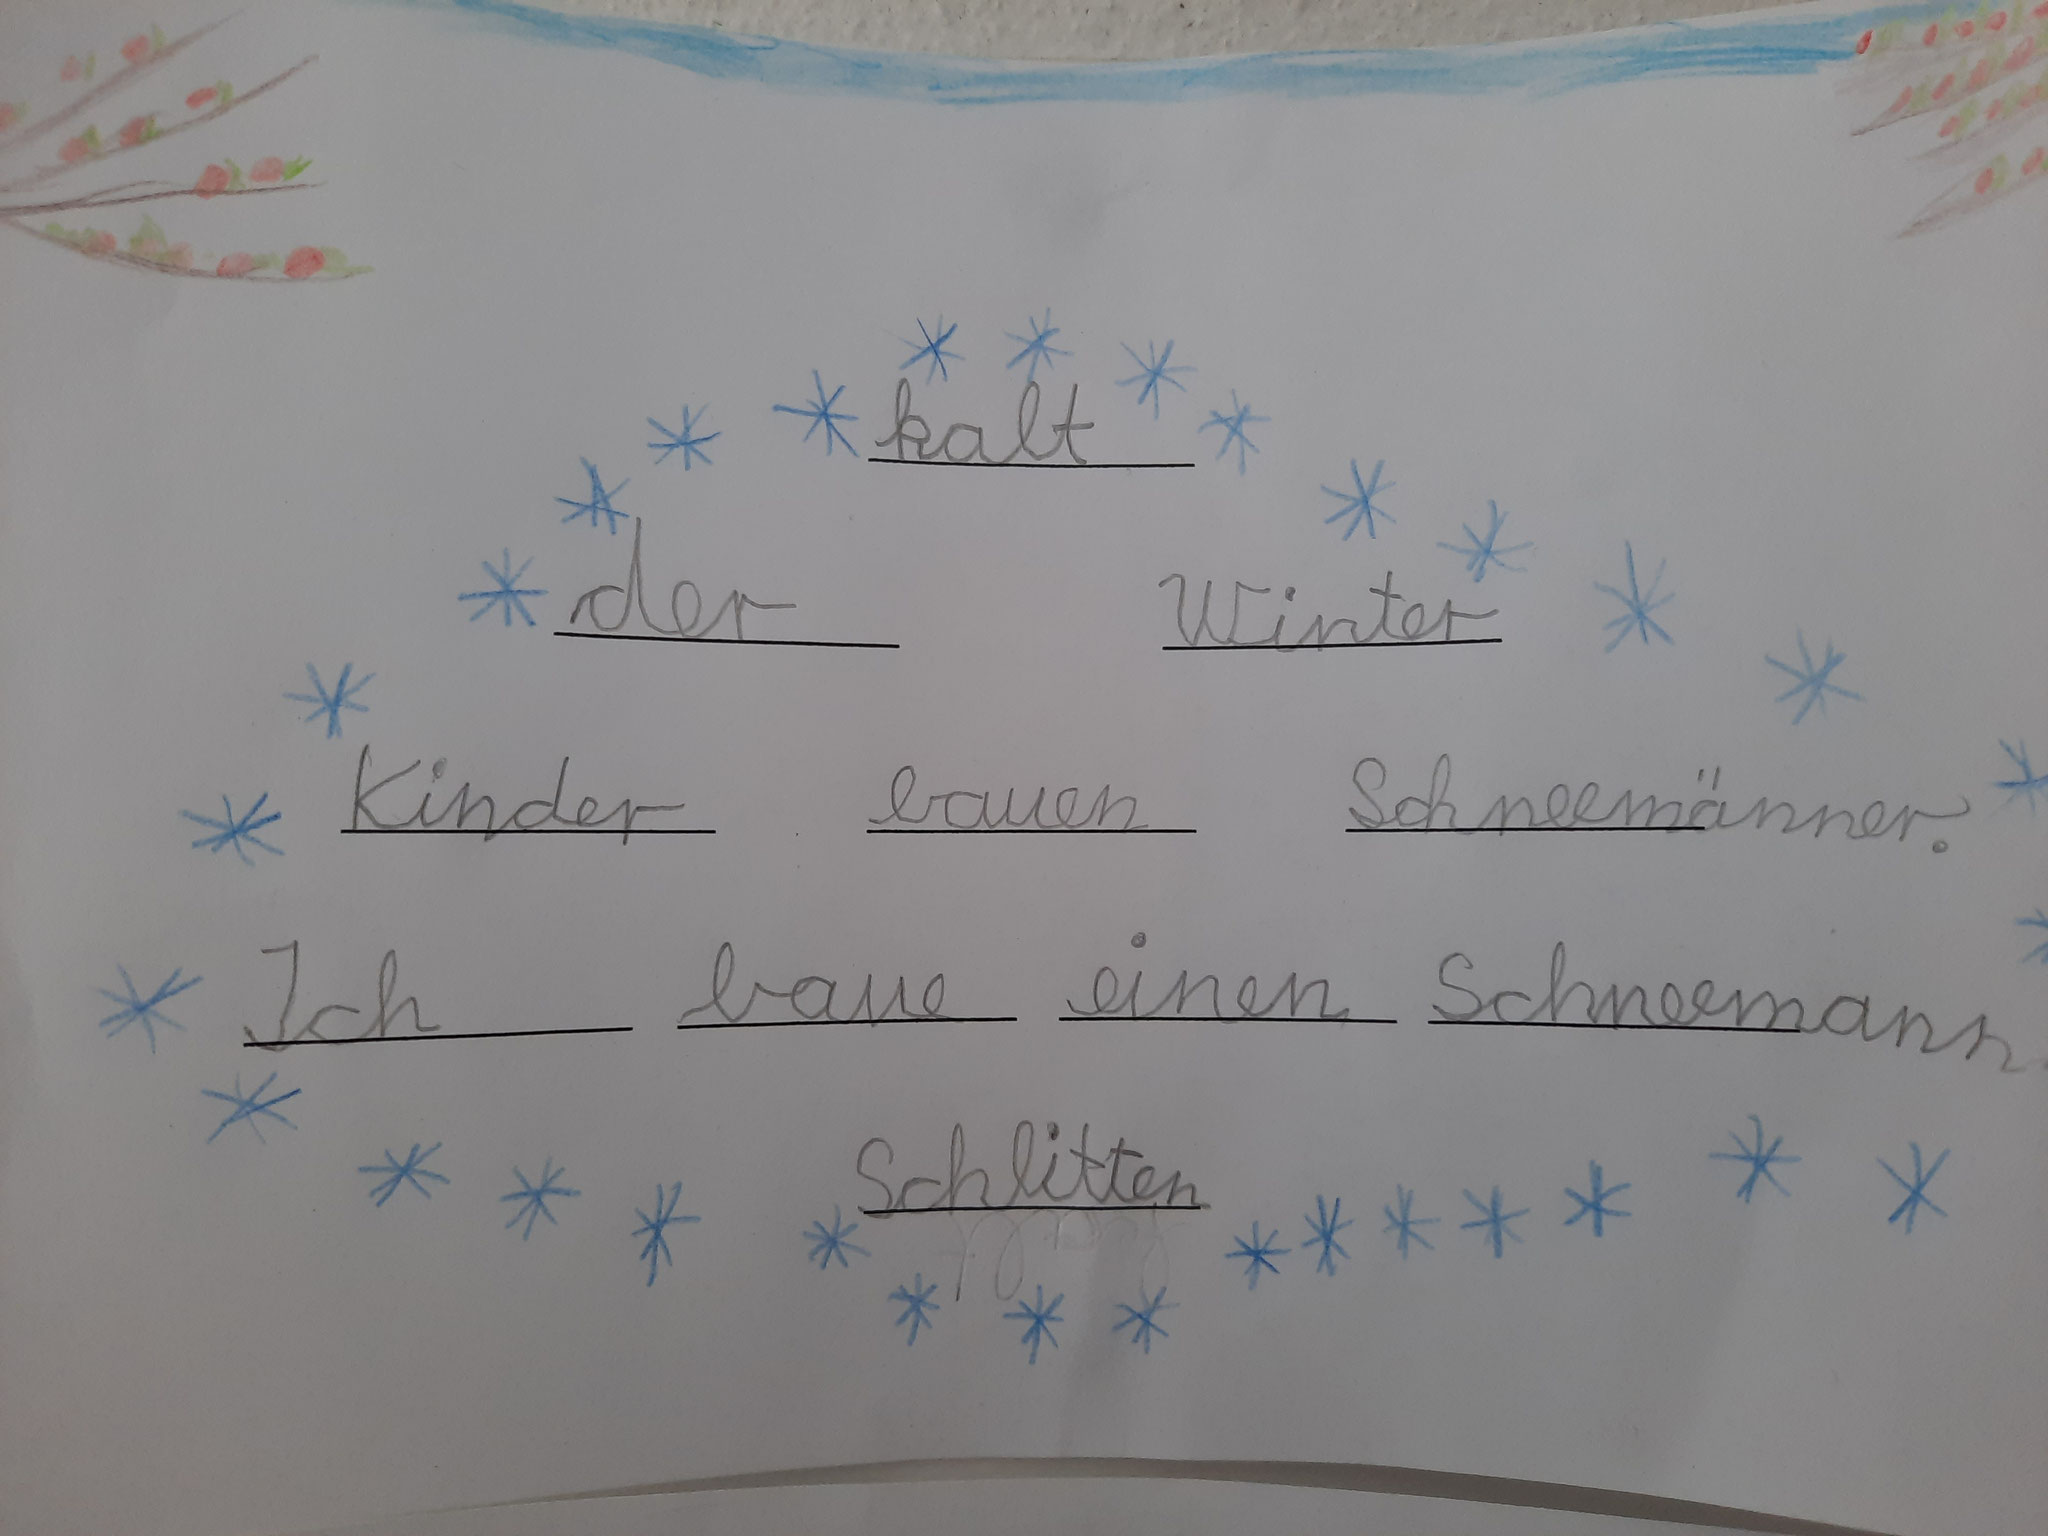 kalt
der Winter
Kinder bauen Schneemänner.
Ich baue einen Schneemann.
Schlitten